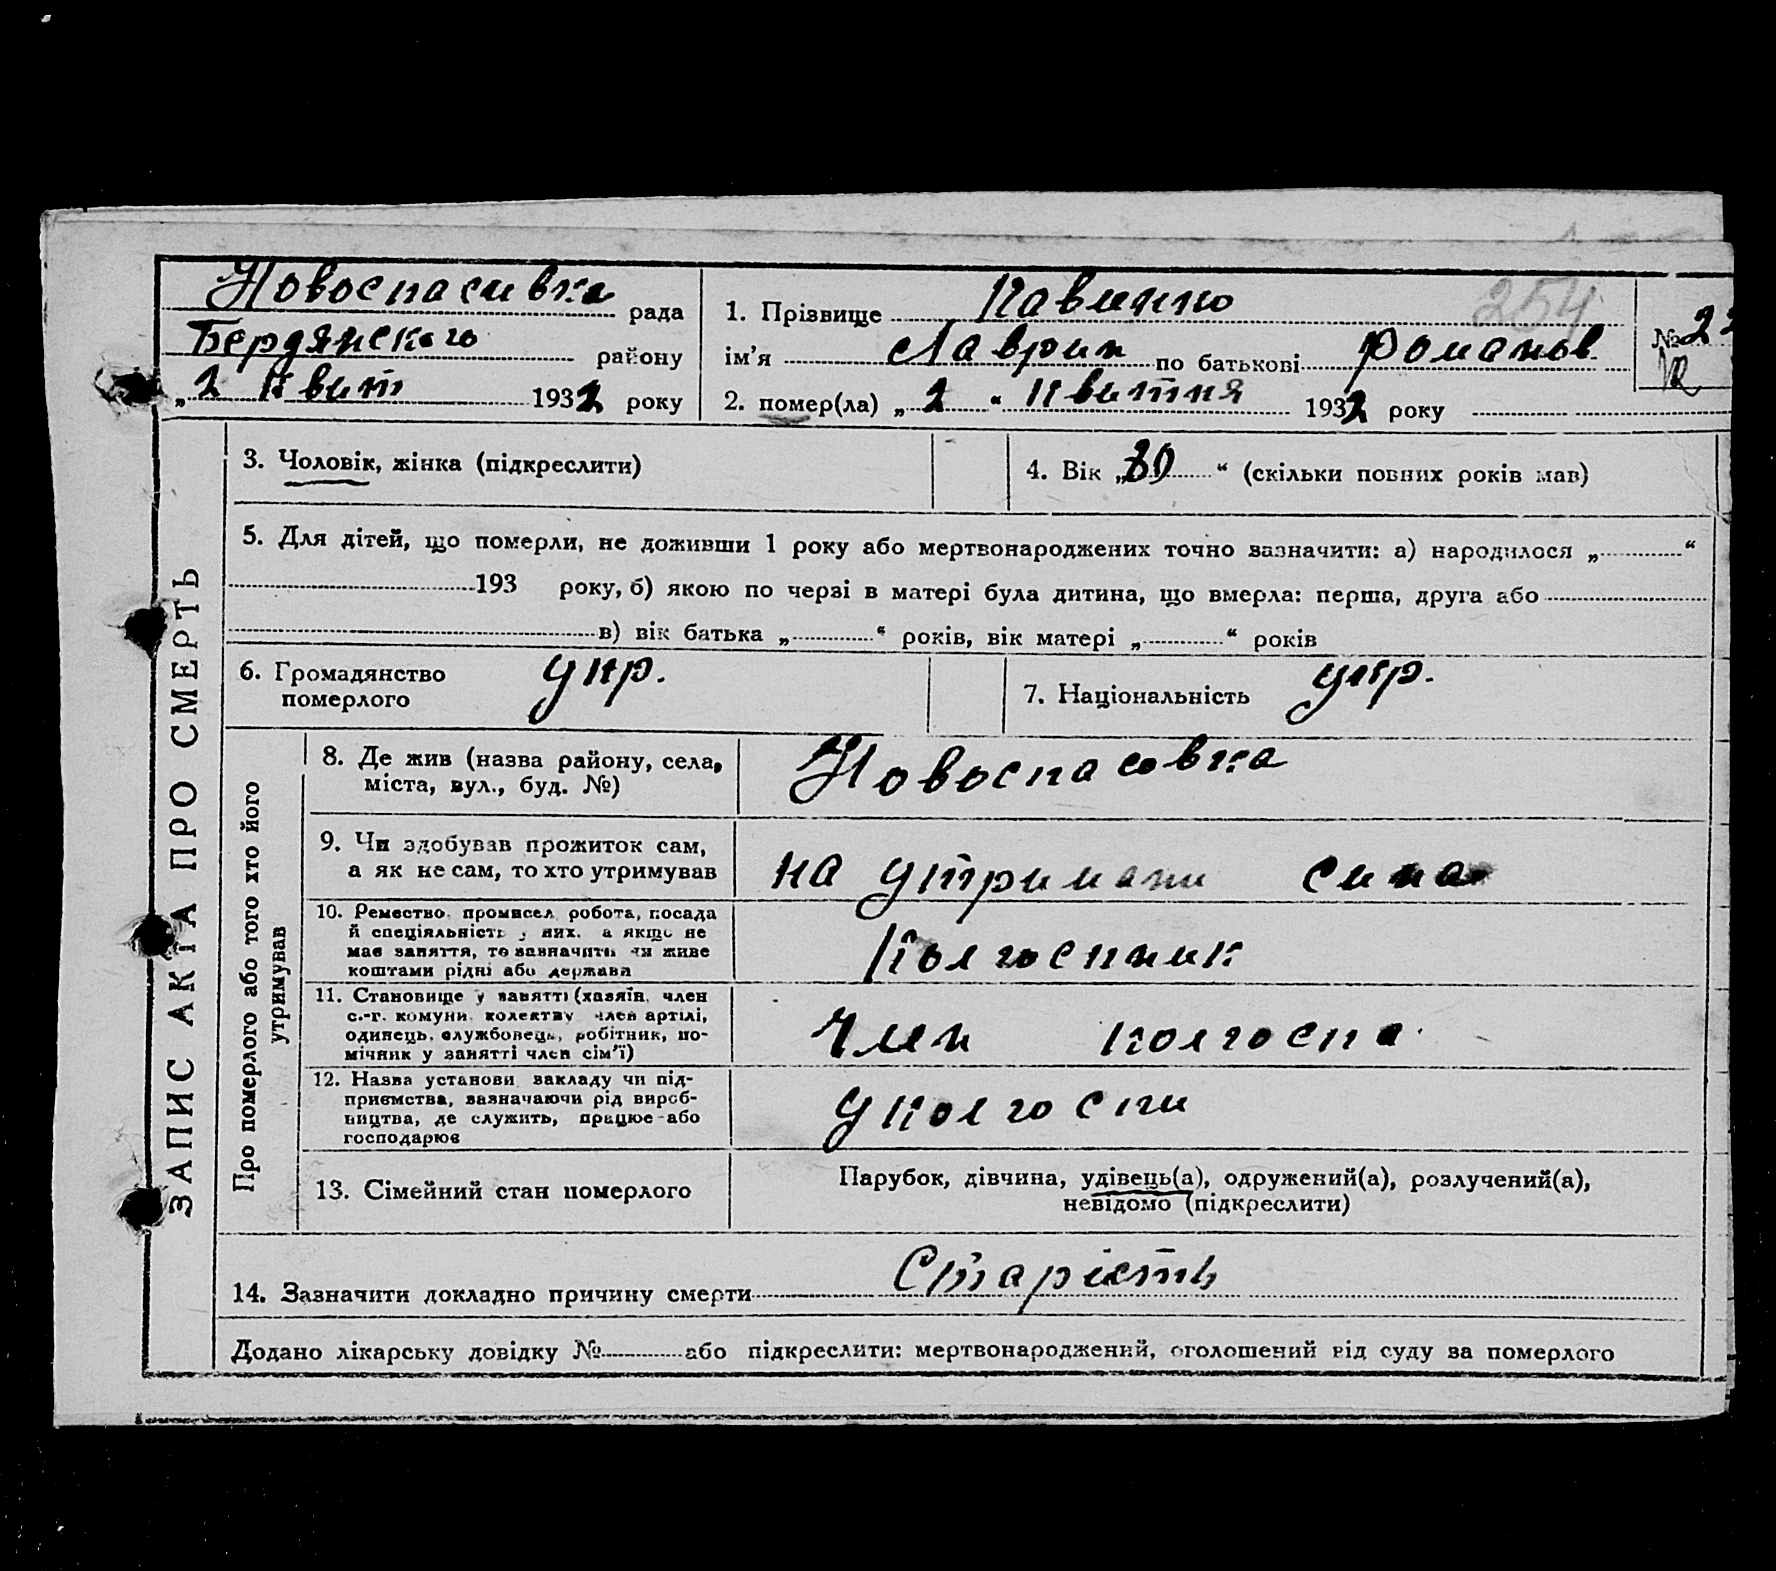 Новоспасивка рада
Бердянского району
„2 Квит 1932 року
1. Прізвище Кавинно 254
ім'я Лаврин по батькові Романов
2. помер(ла) „2“ Квитня 1932 року
№ 22
ЗАПИС АКТА ПРО СМЕРТЬ
3. Чоловік, жінка (підкреслити)
4. Вік „80“ (скільки повних років мав)
5. Для дітей, що померли, не доживши 1 року або мертвонароджених точно зазначити: а) народилося „ “
193 року, б) якою по черзі в матері була дитина, що вмерла: перша, друга або
в) вік батька „ “ років, вік матері „ “ років
6. Громадянство
померлого
укр.
7. Національність укр.
Про померлого або того хто його
утримував
8. Де жив (назва району, села,
міста, вул., буд. №)
Новоспасовка
9. Чи здобував прожиток сам,
а як не сам, то хто утримував
на утримани сина
10. Ремество, промисел, робота, посада
й спеціяльність у них, а якщо не
має заняття, то зазначити чи живе
коштами рідні або держави
Колгоспник
11. Становище у занятті (хазяїн, член
с.-г. комуни, колективу член артілі,
одинець, службовець, робітник, по-
мічник у занятті член сім'ї)
Член колгоспа
12. Назва установи, закладу чи під-
приємства, зазначаючи рід вироб-
ництва, де служить, працює або
господарює
у колгоспи
13. Сімейний стан померлого
Парубок, дівчина, удівець(а), одружений(а), розлучений(а),
невідомо (підкреслити)
14. Зазначити докладно причину смерти Старість
Додано лікарську довідку № або підкреслити: мертвонароджений, оголошений від суду за померлого